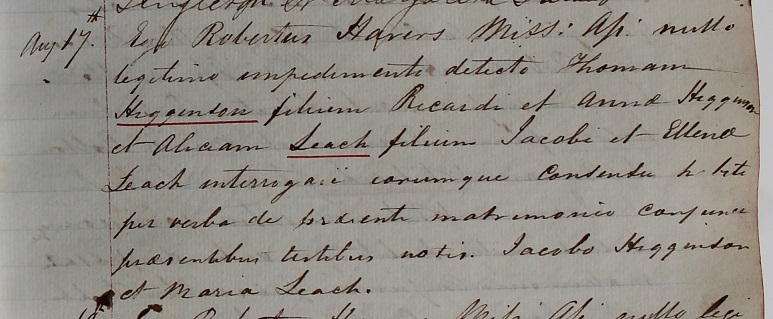 Aug 17.th Ego Robertus Havers Miss: Ap. nullo
legitimo impedimento detecto Thomam
Higginson filium Ricardi et Annæ Higginson
et Aliciam Leach filium Jacobi et Ellenæ
Leach interrogavi eorumque consensu hbito
per verba de præsenti matrimonio conjunxi
præsentibus testibus notis. Jacobo Higginson
et Maria Leach.